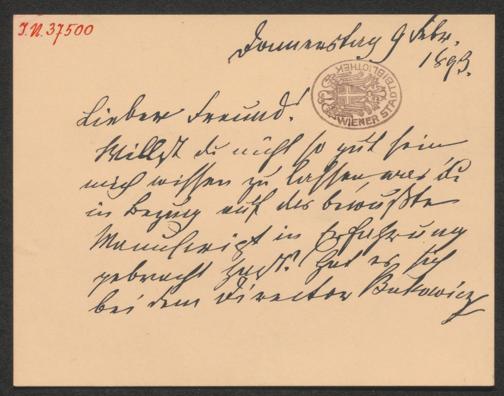 I.N. 37500
Donnerstag 9 Febr.
1893.
WIENER STADTBIBLIOTHEK
Lieber Freund!
Willst du nicht so gut sein
mich wissen zu lassen was du
in Bezug auf das bewußte
Manuscript in Erfahrung
gebracht hast? Hat es sich
bei dem Director Bukovics